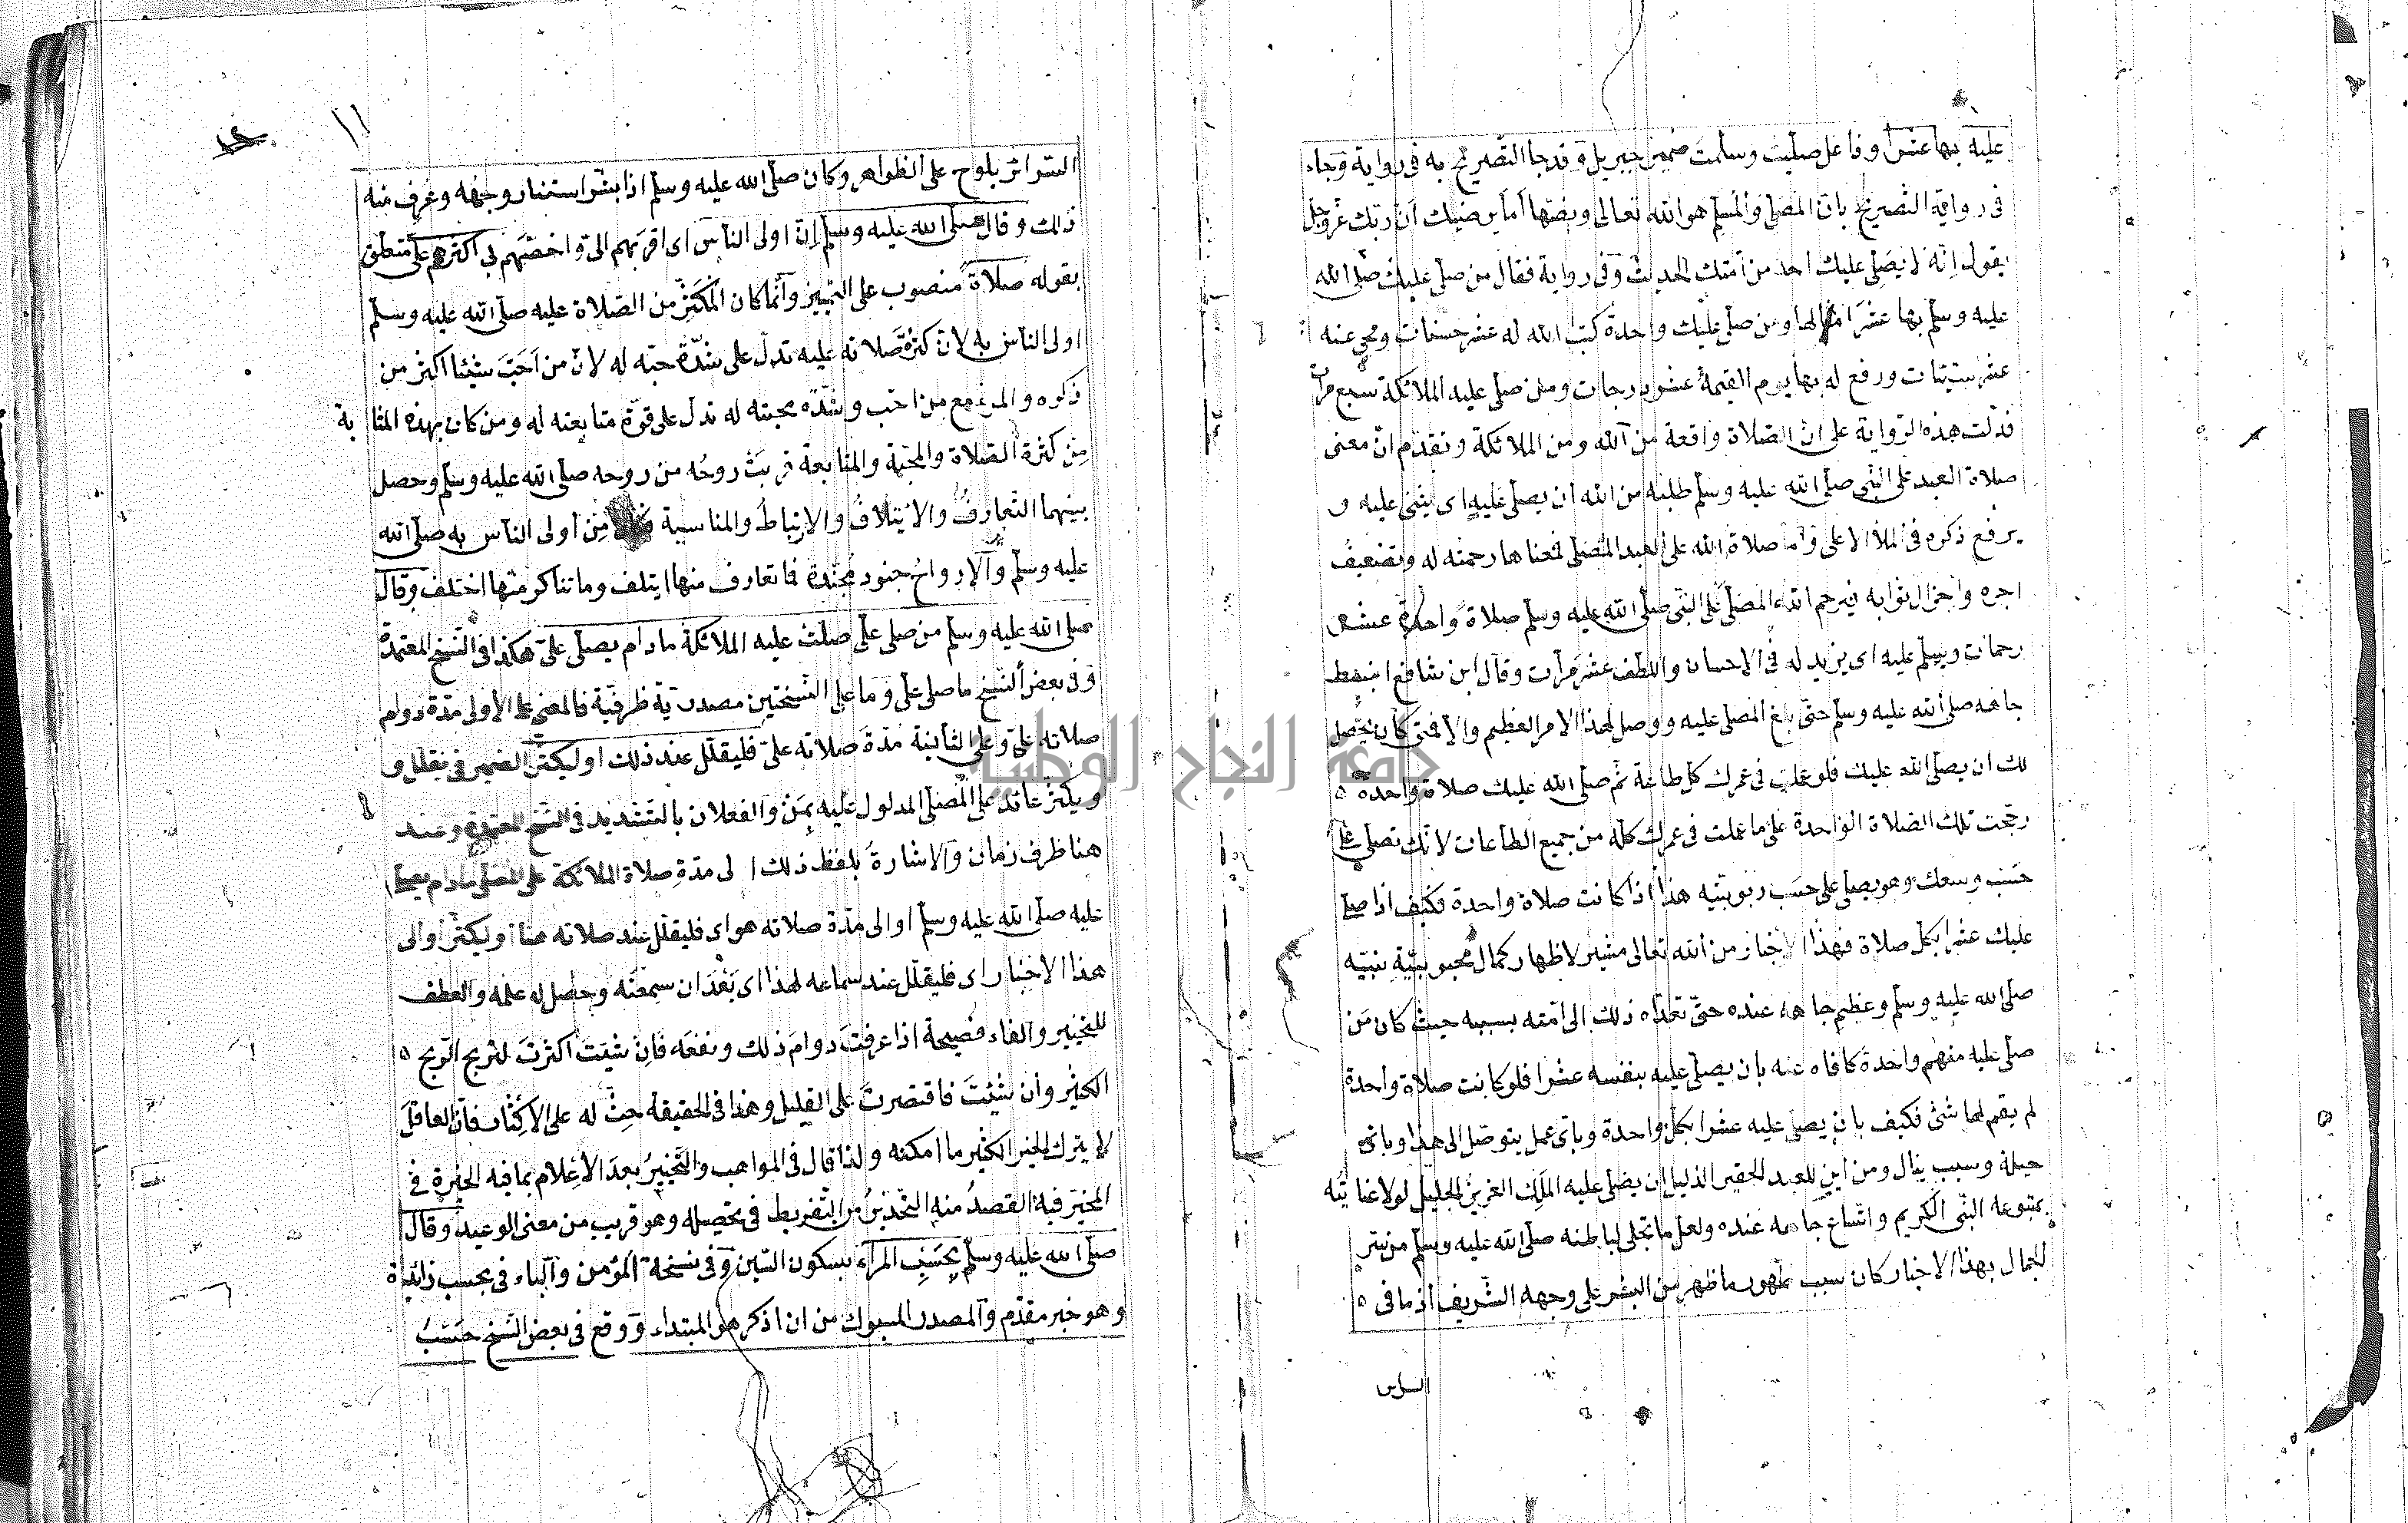 عليه بها عشرا وفاعل صليت وسلمت ضمير جبريل وقد جا التصريح به في رواية وجاء
في رواية التصريح بان المصلي والمسلم هو الله تعالى ونصها أما يرضيك أن ربك عز وجل
يقول إنه لا يصلي عليك احد من أمتك الحديث وفي رواية فقال من صلى عليك صلى الله
عليه وسلم بها عشرا امثالها ومن صلى عليك واحدة كتب الله له عشر حسنات ومحى عنه
عشر سيئات ورفع له بها يوم القيمة عشر درجات ومن صلى عليه الملائكة سبع مرات
فدلت هذه الرواية على ان الصلاة واقعة من الله ومن الملائكة وتقدم ان معنى
صلاة العبد على النبي صلى الله عليه وسلم طلبه من الله ان يصلي عليه اى يثنى عليه و
يرفع ذكره في الملأ الاعلى وأما صلاة الله على العبد المصلي فمعناها رحمته له وتضعيف
اجره واجزال ثوابه فيرحم الله المصلي على النبي صلى الله عليه وسلم صلاة واحدة عشر
رحمات ويسلم عليه اى يزيد له في الاحسان واللطف عشر مرات وقال ابن شافع انبسط
جاهه صلى الله عليه وسلم حتى بلغ المصلي عليه ووصل لهذا الامر العظيم والا فمتى كان يحصل
لك ان يصلي الله عليك فلو عملت في عمرك كل طاعة ثم صلى الله عليك صلاة واحدة
رجحت تلك الصلاة الواحدة على ما عملت في عمرك كله من جميع الطاعات لانك تصلي على
حسب وسعك وهو يصلي على حسب ربوبيته هذا اذا كانت صلاة واحدة فكيف اذا صلى
عليك عشرا بكل صلاة فهذا الاخبار من الله تعالى مشير لاظهار كمال محبوبية نبيه
صلى الله عليه وسلم وعظيم جاهه عنده حتى تعداه ذلك الى امته بسببه حيث كان من
صلى عليه منهم واحدة كافاه عنه بان يصلي عليه بنفسه عشرا فلو كانت صلاة واحدة
لم يقم لها شئ فكيف بان يصلي عليه عشرا بكل واحدة وباى عمل يتوصل الى هذا وباى
حيلة وسبب ينال ومن اين للعبد الحقير الذليل ان يصلى عليه الملك العزيز الجليل لولا عنايته
بمتبوعه النبي الكريم واتساع جاهه عنده ولعل ما تجلى لباطنه صلى الله عليه وسلم من سر
الجمال بهذا الاخبار كان سبب ظهور ما ظهر من البشر على وجهه الشريف اذ ما في
السراير
١١
السرائر يلوح على الظواهر وكان صلى الله عليه وسلم اذا بشر استنار وجهه وعرف منه
ذلك وقال صلى الله عليه وسلم إن اولى الناس اى اقربهم الى واخصهم بى اكثرهم على متعلق
بقوله صلاة منصوب على التمييز وانما كان المكثر من الصلاة عليه صلى الله عليه وسلم
اولى الناس به لان كثرة صلاته عليه تدل على شدة حبه له لان من احب شيئا اكثر من
ذكره والمرء مع من احب وشدة محبته له تدل على قوة متابعته له ومن كان بهذه المثابة
من كثرة الصلاة والمحبة والمتابعة قربت روحه من روحه صلى الله عليه وسلم وحصل
بينهما التعارف والايتلاف والارتباط والمناسبة من أولى الناس به صلى الله
عليه وسلم والارواح جنود مجندة فما تعارف منها ايتلف وما تناكر منها اختلف وقال
صلى الله عليه وسلم من صلى على صلت عليه الملائكة مادام يصلى على هكذا في النسخ المعتمدة
وفي بعض النسخ ما صلى على وما على النسختين مصدرية ظرفية فالمعنى على الاولى مدة دوام
صلاته على وعلى الثانية مدة صلاته على فليقلل عند ذلك او ليكثر الضمير في يقلل و
ويكثر عائد على المصلى المدلول عليه بمن والفعلان بالتشديد في النسخ المعتمدة وعند
هنا ظرف زمان والاشارة بلفظ ذلك الى مدة صلاة الملائكة على المصلى مادام يصلى
عليه صلى الله عليه وسلم او الى مدة صلاته هو اى فليقلل عند صلاته هنا او ليكثر او الى
هذا الاخبار اى فليقلل عند سماعه لهذا اى بعد ان سمعته وحصل له علمه والعطف
للتخيير والفاء فصيحة اذا عرفت دوام ذلك ونفعه فان شيت اكثرت لتربح الربح
الكثير وان شئت فاقتصرت على القليل وهذا في الحقيقة حث له على الاكثار فان العاقل
لا يترك الخير الكثير ما امكنه ولذا قال في المواهب والتخيير بعد الاعلام بما فيه الخيرة في
المخير فيه القصد منه التحذير من التفريط في تحصيله وهو قريب من معنى الوعيد وقال
صلى الله عليه وسلم بحسب المرء بسكون السين وفي نسخة المؤمن والباء في بحسب زائدة
وهو خبر مقدم والمصدر المسبوك من ان اذكر هو المبتداء ووقع في بعض النسخ حسب
جامعة النجاح الوطنية